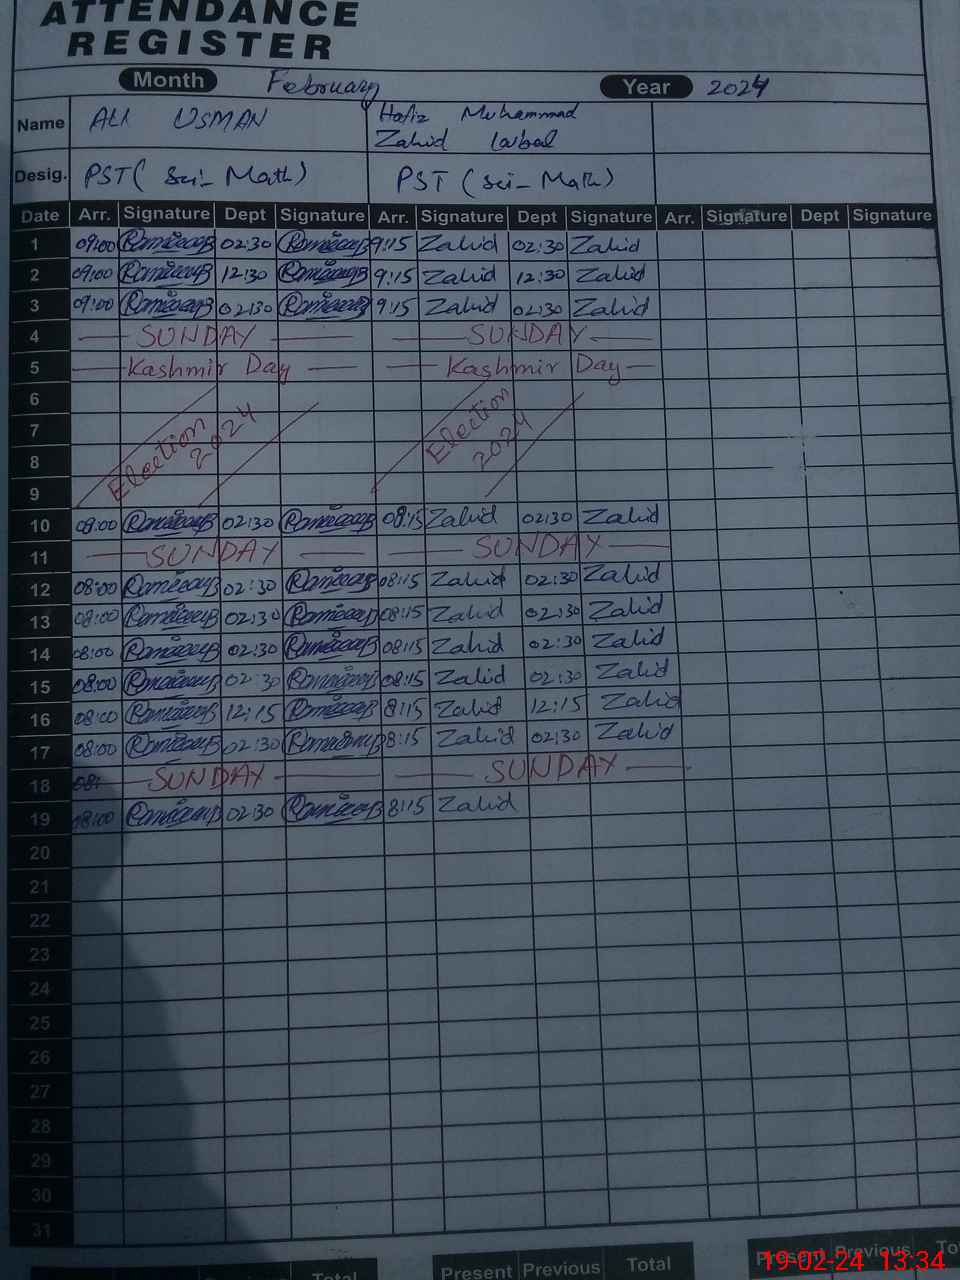 ATTENDANCE
REGISTER
Month February Year 2024
Name ALI USMAN Hafiz Muhammad
Zahid Iqbal
Desig. PST ( Sci- Math) PST (Sci- Math)
Date Arr. Signature Dept Signature Arr. Signature Dept Signature Arr. Signature Dept Signature
1 09:00 02:30 9:15 Zahid 02:30 Zahid
2 09:00 12:30 9:15 Zahid 12:30 Zahid
3 09:00 02:30 9:15 Zahid 02:30 Zahid
4 SUNDAY SUNDAY
5 Kashmir Day Kashmir Day
6
7 Election 2024 Election 2024
8
9
10 08:00 02:30 08:15 Zahid 02:30 Zahid
11 SUNDAY SUNDAY
12 08:00 02:30 08:15 Zahid 02:30 Zahid
13 08:00 02:30 08:15 Zahid 02:30 Zahid
14 08:00 02:30 08:15 Zahid 02:30 Zahid
15 08:00 02:30 08:15 Zahid 02:30 Zahid
16 08:00 12:15 8:15 Zahid 12:15 Zahid
17 08:00 02:30 8:15 Zahid 02:30 Zahid
18 SUNDAY SUNDAY
19 08:00 02:30 8:15 Zahid
20
21
22
23
24
25
26
27
28
29
30
31
Total Present Previous Total Present Previous
19-02-24 13:34